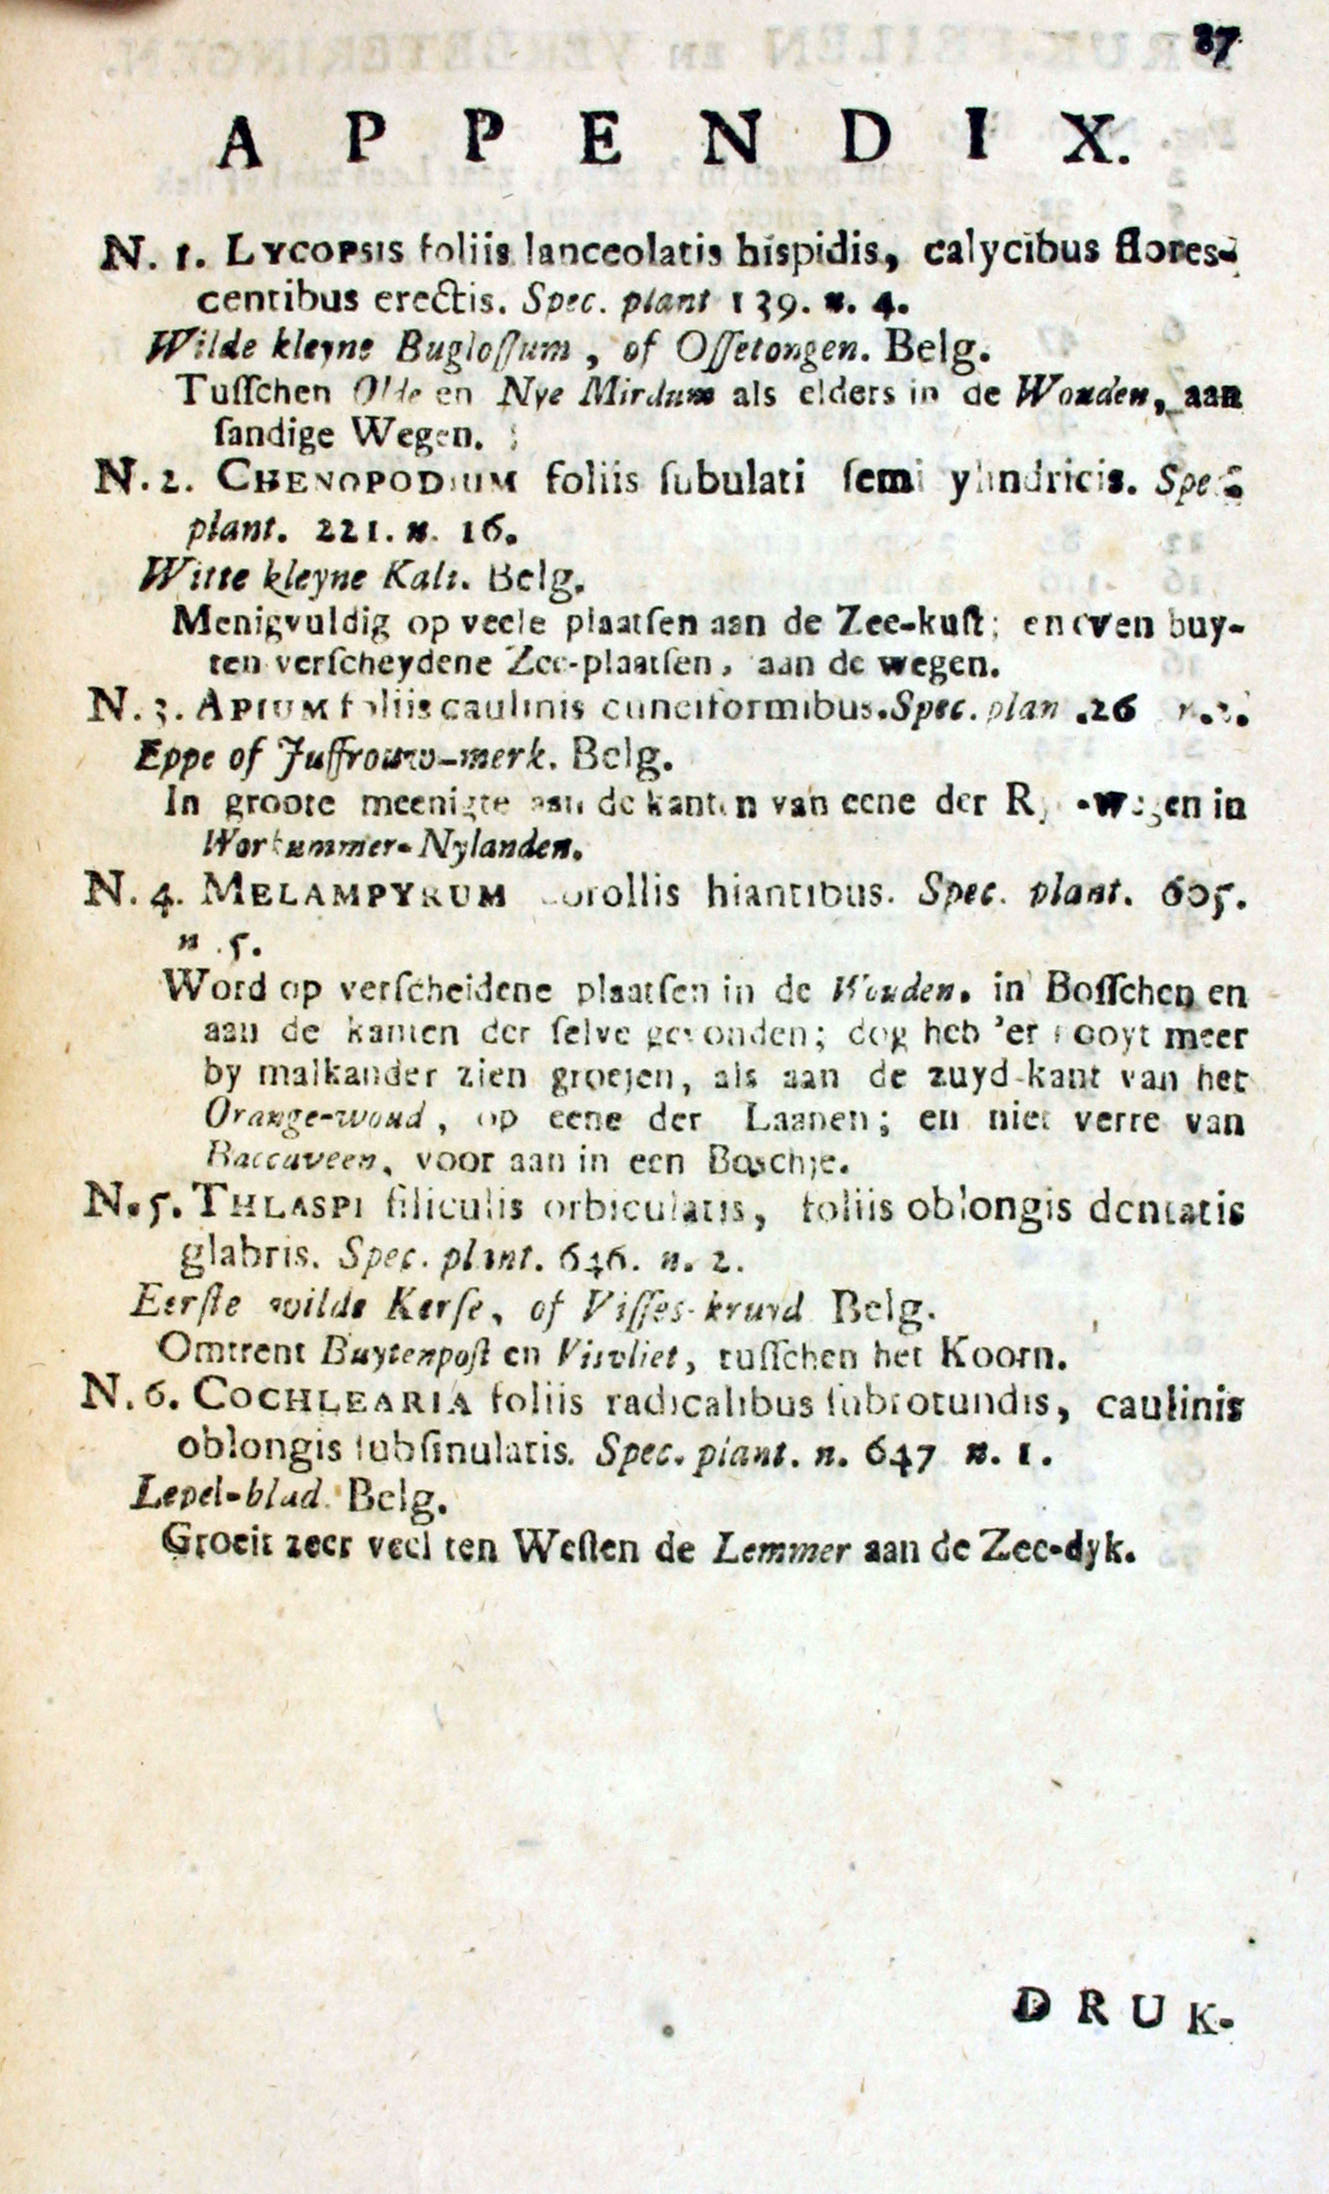 87
APPENDIX.
N. 1. LYCOPSIS foliis lanceolatis hispidis, calycibus flores-
centibus erectis. Spec. plant 139. n. 4.
Wilde kleyne Bugloſſum, of Oſſetongen. Belg.
Tuſſchen Olde en Nye Mirdum als elders in de Wouden, aan
ſandige Wegen.
N. 2. CHENOPODIUM foliis ſubulati ſemi ylindricis. Spec.
plant. 221. n. 16.
Witte kleyne Kali. Belg.
Menigvuldig op veele plaatſen aan de Zee-kuſt; en even buy-
ten verſcheydene Zee-plaatſen, aan de wegen.
N. 3. APIUM foliis caulinis cuneiformibus. Spec. plan .26 n.
Eppe of Juffrouw-merk. Belg.
In groote meenigte aan de kanten van eene der -wegen in
Workummer-Nylanden.
N. 4. MELAMPYRUM corollis hiantibus. Spec. plant. 605.
n. 5.
Word op verſcheidene plaatſen in de Wouden. in Boſſchen en
aan de kanten der ſelve gevonden; dog heb 'er nooyt meer
by malkander zien groejen, als aan de zuyd-kant van het
Orange-woud, op eene der Laanen; en niet verre van
Baccaveen, voor aan in een Boschje.
N. 5. THLASPI ſiliculis orbiculatis, foliis oblongis dentatis
glabris. Spec. plant. 646. n. 2.
Eerſte wilde Kerſe, of Viſſes-kruyd Belg.
Omtrent Buytenpoſt en Visvliet, tuſſchen het Koorn.
N. 6. COCHLEARIA foliis radicalibus ſubrotundis, caulinis
oblongis ſubſinulatis. Spec. plant. n. 647 n. 1.
Lepel-blad. Belg.
Groeit zeer veel ten Weſten de Lemmer aan de Zee-dyk.
DRUK-